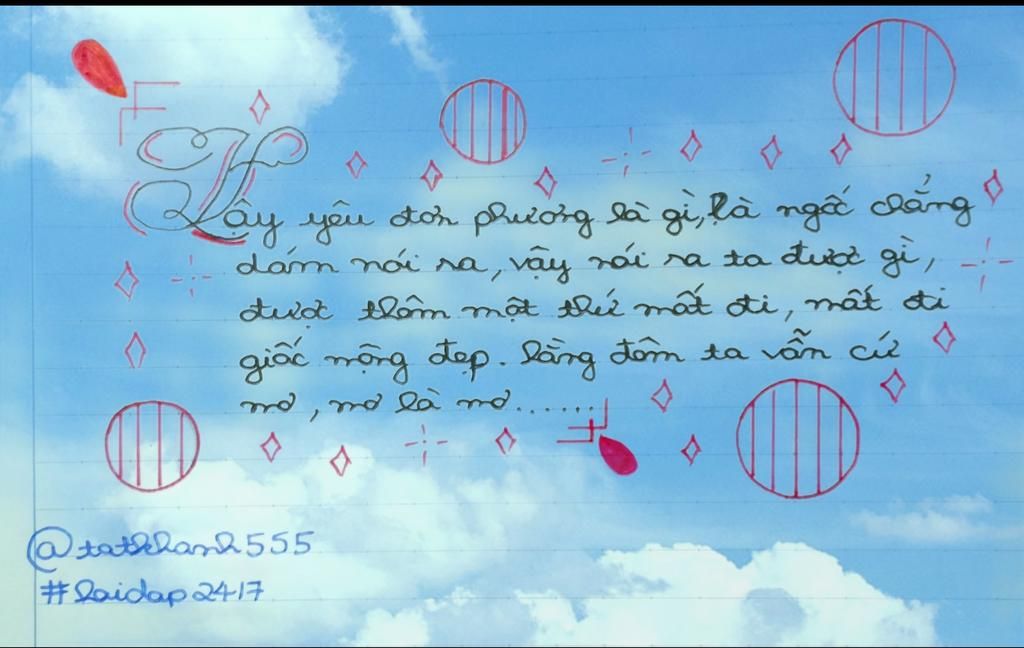 Vậy yêu đơn phương là gì, là ngốc chẳng
dám nói ra, vậy nói ra ta được gì,
được thêm một thứ mất đi, mất đi
giấc mộng đẹp. Hằng đêm ta vẫn cứ
mơ, mơ là mơ......
@tatkhanh555
#laidap2417